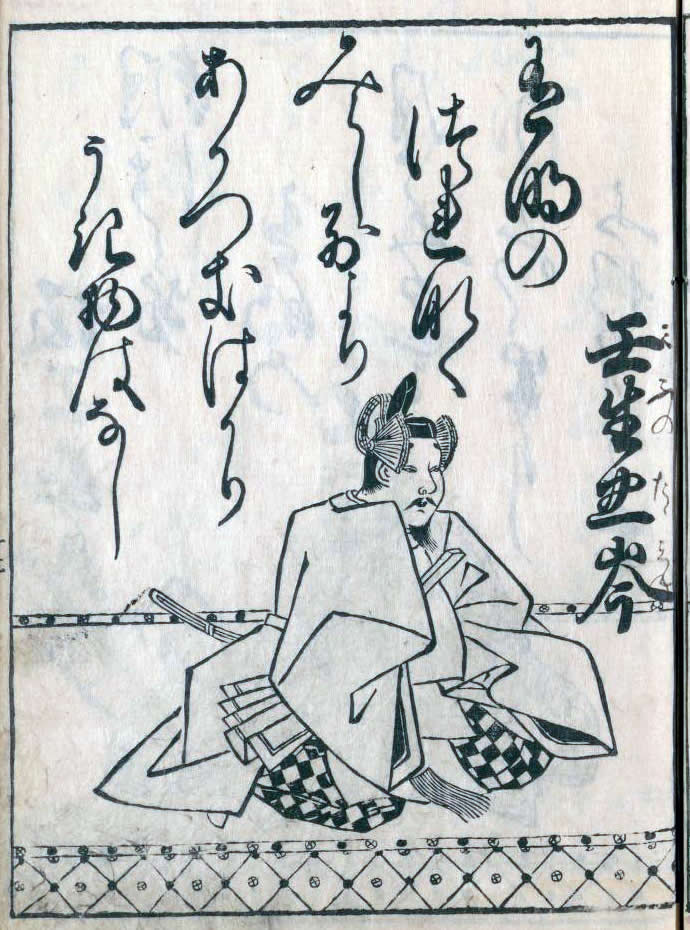 みふのたゝみね
壬生忠岑
有明の
つれなく
みえし別より
あかつきはかり
うき物はなし